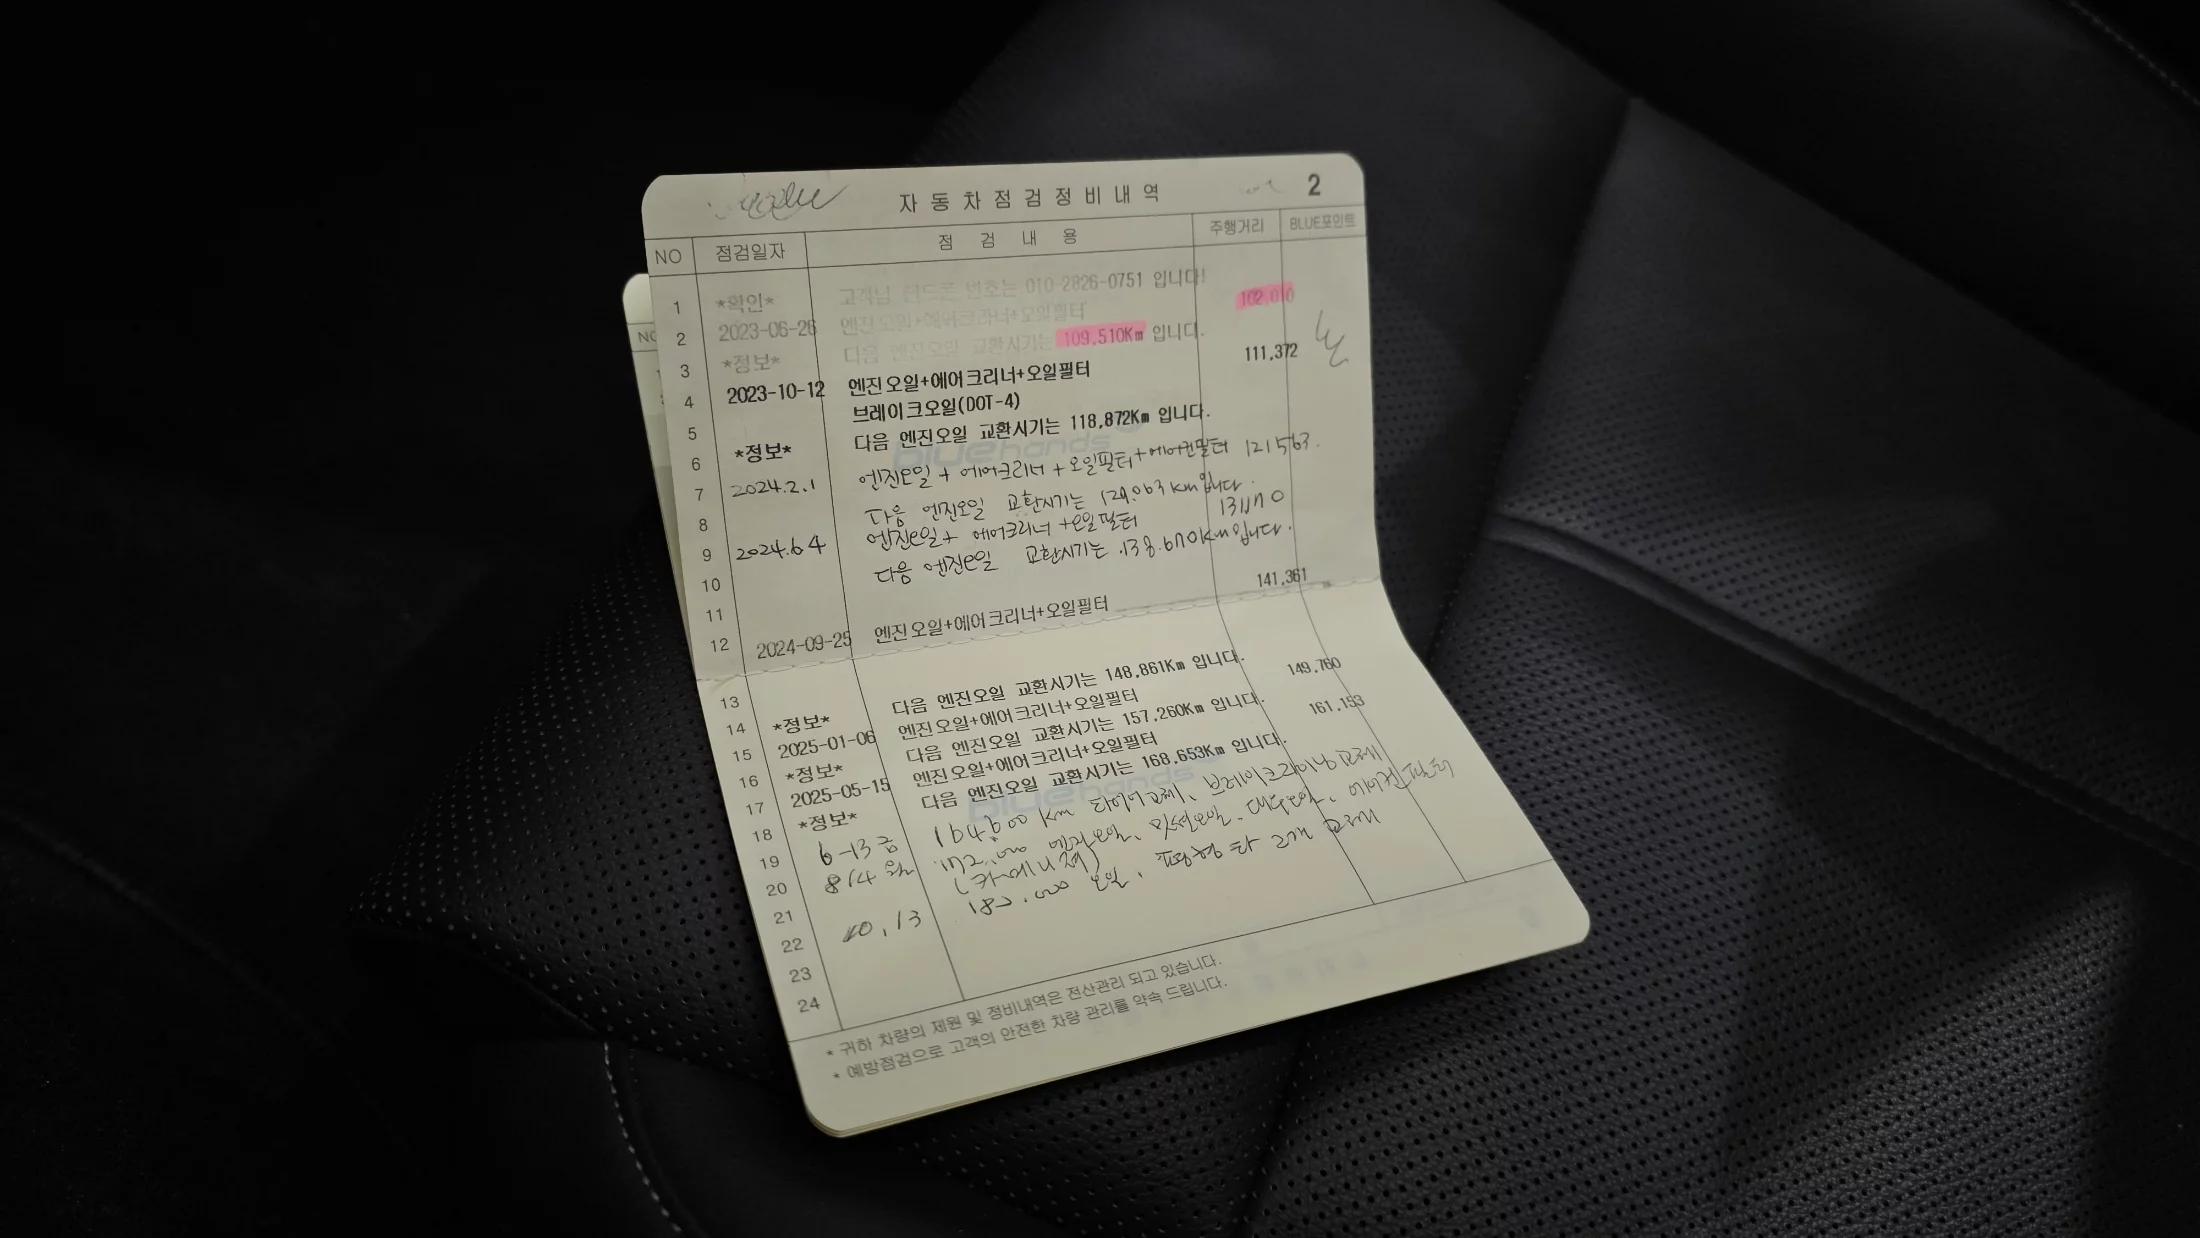 자동차점검정비내역 2
NO 점검일자 점검내용 주행거리 BLUE포인트
1 *확인* 고객님 핸드폰 번호는 010-2826-0751 입니다!
2 2023-06-26 엔진오일+에어크리너+오일필터 102,010
3 *정보* 다음 엔진오일 교환시기는 109,510Km 입니다.
4 2023-10-12 엔진오일+에어크리너+오일필터 111,372
5 브레이크오일(DOT-4)
6 *정보* 다음 엔진오일 교환시기는 118,872Km 입니다.
7 2024.2.1 엔진오일 + 에어크리너 + 오일필터 + 에어컨필터 121563.
8 다음 엔진오일 교환시기는 129.063 km입니다.
9 2024.6.4 엔진오일 + 에어크리너 + 오일필터 131170
10 다음 엔진오일 교환시기는 138.670km입니다.
11
12 2024-09-25 엔진오일+에어크리너+오일필터 141,361
13 *정보* 다음 엔진오일 교환시기는 148,861Km 입니다.
14 2025-01-06 엔진오일+에어크리너+오일필터 149,760
15 *정보* 다음 엔진오일 교환시기는 157,260Km 입니다.
16 2025-05-15 엔진오일+에어크리너+오일필터 161,153
17 *정보* 다음 엔진오일 교환시기는 168,653Km 입니다.
18 6-13 금 164,600 km 타이어교체, 브레이크라이닝교체
19 8/4 월 172,000 엔진오일, 밋션오일, 에어컨필터
20
21 10,13 오일, 2개 교체
22
23
24
bluehands
bluehands
* 귀하 차량의 제원 및 정비내역은 전산관리 되고 있습니다.
* 예방점검으로 고객의 안전한 차량 관리를 약속 드립니다.
NO